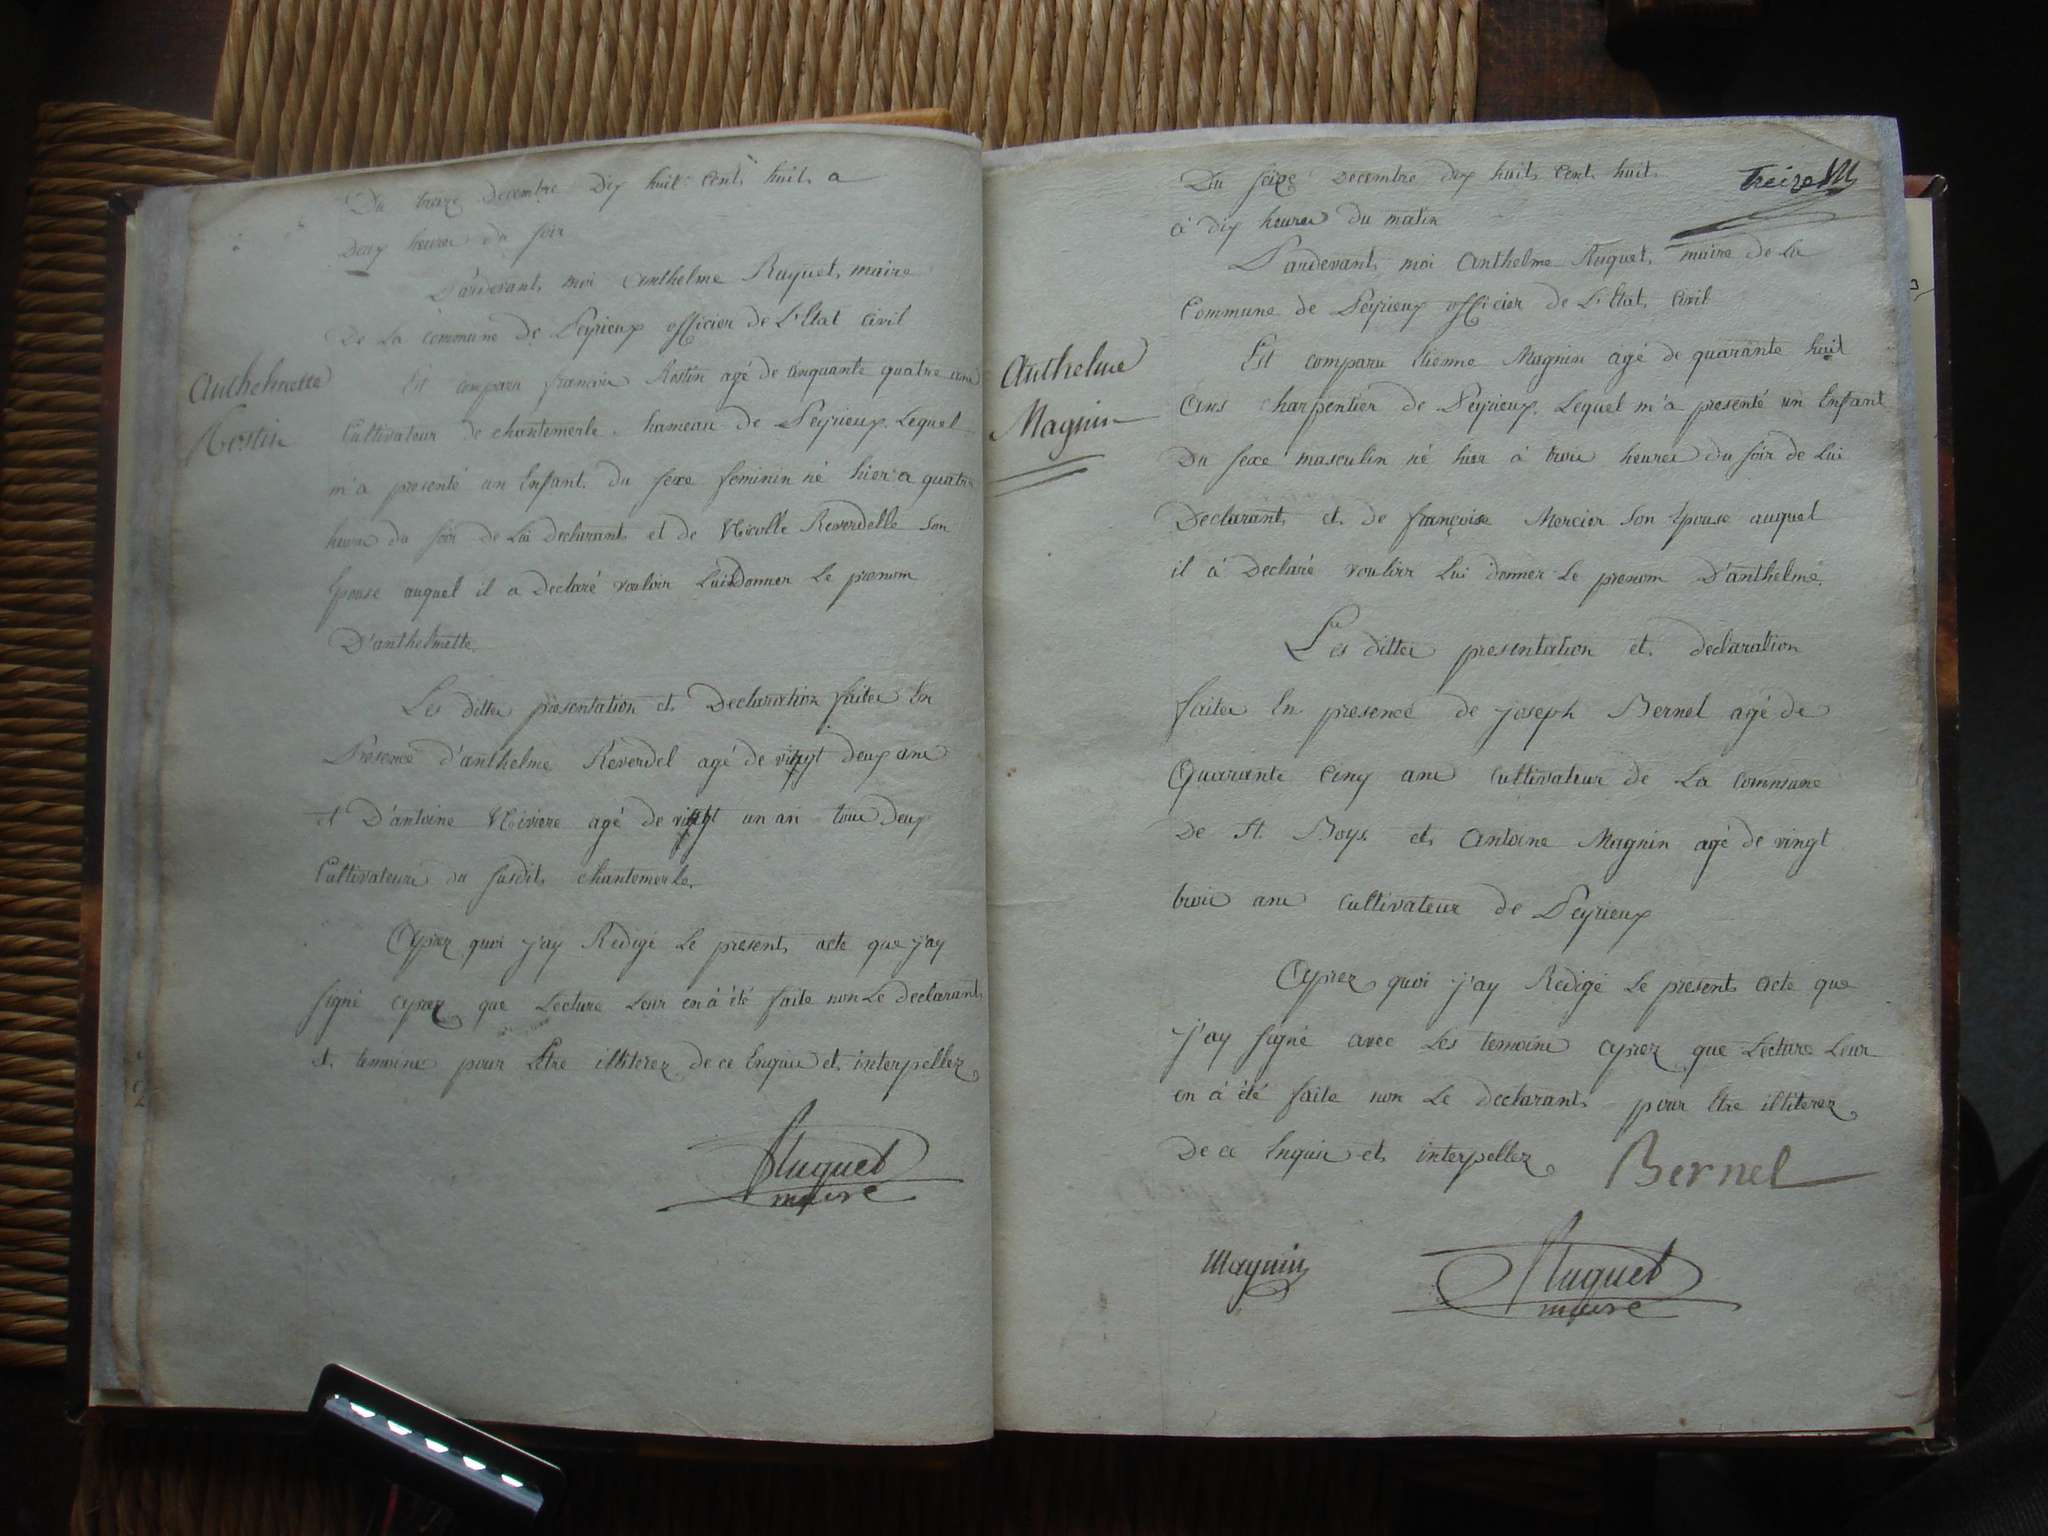 Du treize Decembre Dix huit cent huit a
Deux heures du soir
Pardevant moi Anthelme Ruguet, maire
De La commune de Peyrieux officier de L'Etat civil
Anthelmette
Rostin
Est comparu francois Rostin agé de cinquante quatre ans
Cultivateur de chantemerle hameau de Peyrieux Lequel
m'a presenté un Enfant du sexe feminin né hier a quatre
heures du soir de Lui declarant et de Nicolle Reverdelle son
Epouse auquel il a Declaré vouloir Lui donner Le prenom
D'anthelmette.
Les dittes presentation et Declaration faites En
Presence d'anthelme Reverdel agé de vingt deux ans
et D'antoine Riviere agé de vingt un an tous Deux
Cultivateurs du susdit chantemerle.
Aprez quoi j'ay Redigé Le present acte que j'ay
signé aprez que Lecture Leur en à été faite non Le declarant
et temoins pour Etre illiterez de ce Enquis et interpellez
Ruguet
maire
treize
Du seize Decembre dix huit cent huit
à dix heures du matin
Pardevant moi Anthelme Ruguet, maire de La
Commune de Peyrieux officier de L'Etat Civil
Anthelme
Magnin
Est comparu Etienne Magnin agé de quarante huit
Ans charpentier de Peyrieux. Lequel m'a presenté un Enfant
Du sexe masculin né hier à trois heures du soir de Lui
Declarant et de françoise Mercier son Epouse auquel
il à Declaré vouloir Lui donner Le prenom D'anthelme.
Les dittes presentation et declaration
faites En presence de joseph Bernel agé de
Quarante Cinq ans cultivateur de La commune
De St. Boys et Antoine Magnin agé de vingt
trois ans cultivateur de Peyrieux
Aprez quoi j'ay Redigé Le present acte que
j'ay signé avec Les temoins aprez que Lecture Leur
en à été faite non Le declarant pour Etre illiterez
De ce Enquis et interpellez
Bernel
Magnin
Ruguet
maire